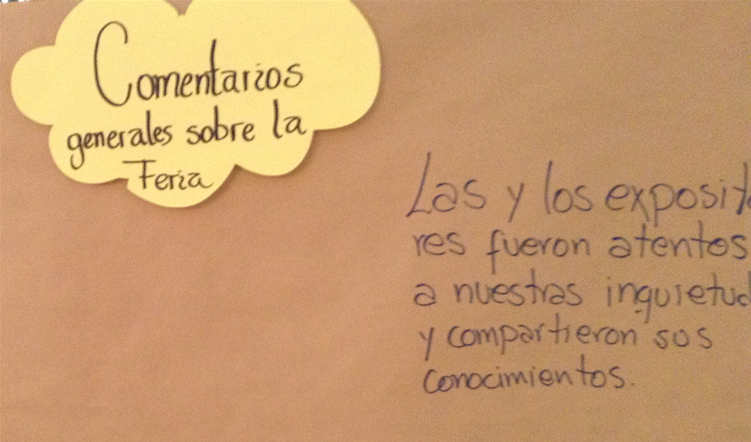 Comentarios
generales sobre la
Feria
Las y los exposit
res fueron atentos
a nuestras inquietud
y compartieron sus
conocimientos.